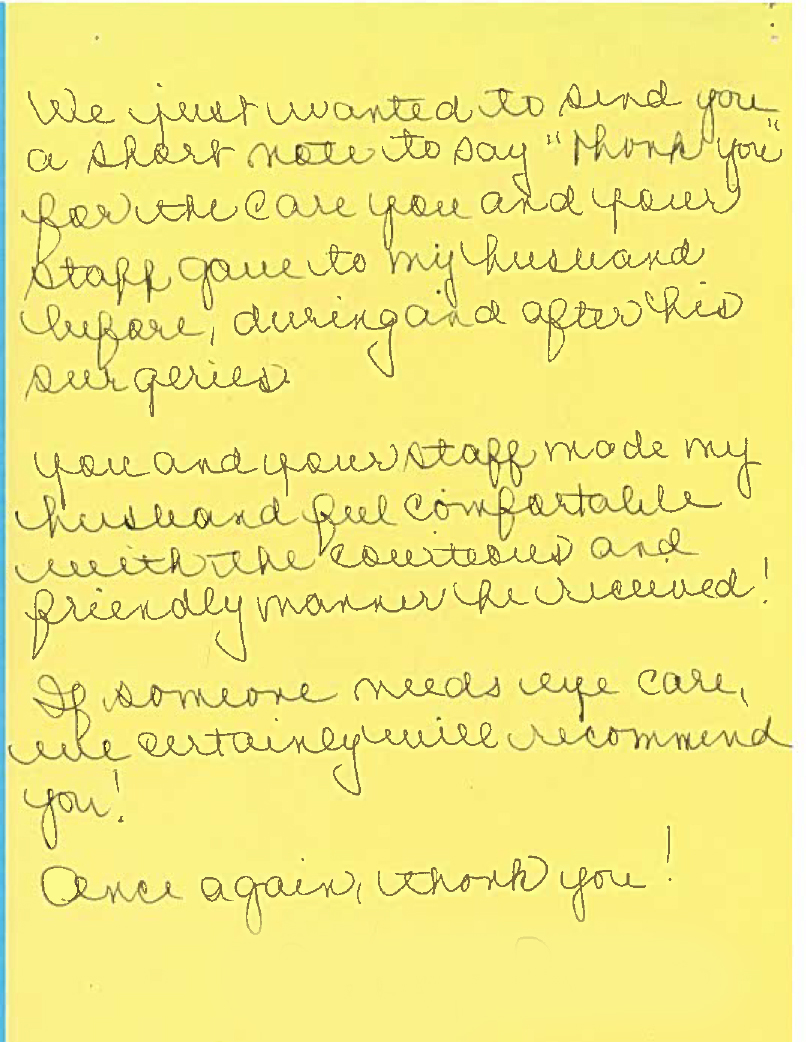 We just wanted to send you
a short note to say "thank you"
for the care you and your
staff gave to my husband
before, during and after his
surgeries.
You and your staff made my
husband feel comfortable
with the courteous and
friendly manner he received!
If someone needs eye care,
we certainly will recommend
you!
Once again, thank you!